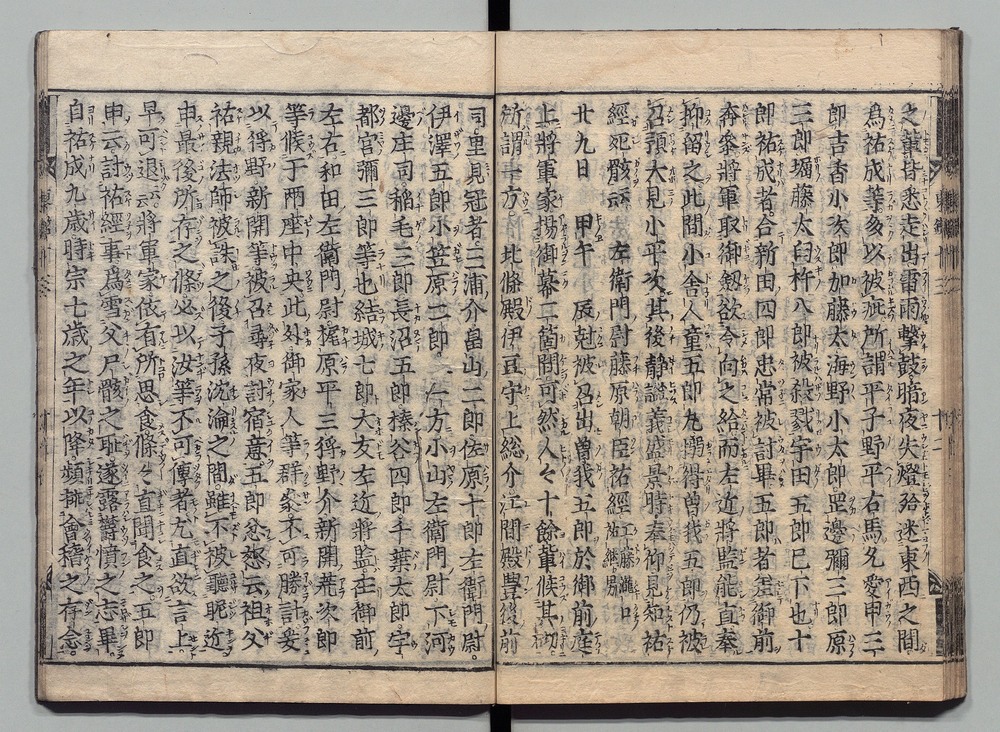 之輩皆悉走出雷雨擊鼓暗夜失燈殆迷東西之間
爲祐成等多以被疵所謂平子野平右馬允愛甲三
郎吉香小次郎加藤太海野小太郎罡邊彌三郎原
三郎堀藤太臼杵八郎被殺戮宇田五郎已下也十
郎祐成者合新田四郎忠常被討畢五郎者差御前
奔參將軍取御劔欲令向之給而左近將監能直奉
抑留之此間小舎人童五郎丸搦得曽我五郎仍被
召預大見小平次其後静謐義盛景時奉仰見知祐
經死骸云云 左衛門尉藤原朝臣祐經工藤瀧口祐繼男
廿九日 甲午 辰尅被召出曽我五郎於御前庭
上將軍家揚御幕二箇間可然人々十餘輩候其砌
所謂一方 北條殿伊豆守上総介江間殿豊後前
司里見冠者三浦介畠山二郎佐原十郎左衛門尉
伊澤五郎小笠原二郎 一方小山左衛門尉下河
邊庄司稲毛三郎長沼五郎榛谷四郎千葉太郎宇
都宮彌三郎等也結城七郎大友左近將監在御前
左右和田左衛門尉梶原平三狩野介新開荒次郎
等候于兩座中央此外御家人等群參不可勝計爰
以狩野新開等被召尋夜討宿意五郎忿怒云祖父
祐親法師被誅之後子孫沈淪之間雖不被聽昵近
申最後所存之條必以汝等不可傳者尤直欲言上
早可退云云將軍家依有所思食條々直聞食之五郎
申云討祐經事爲雪父尸骸之耻遂露欝憤之志畢
自祐成九歳時宗七歳之年以降頻挿會稽之存念